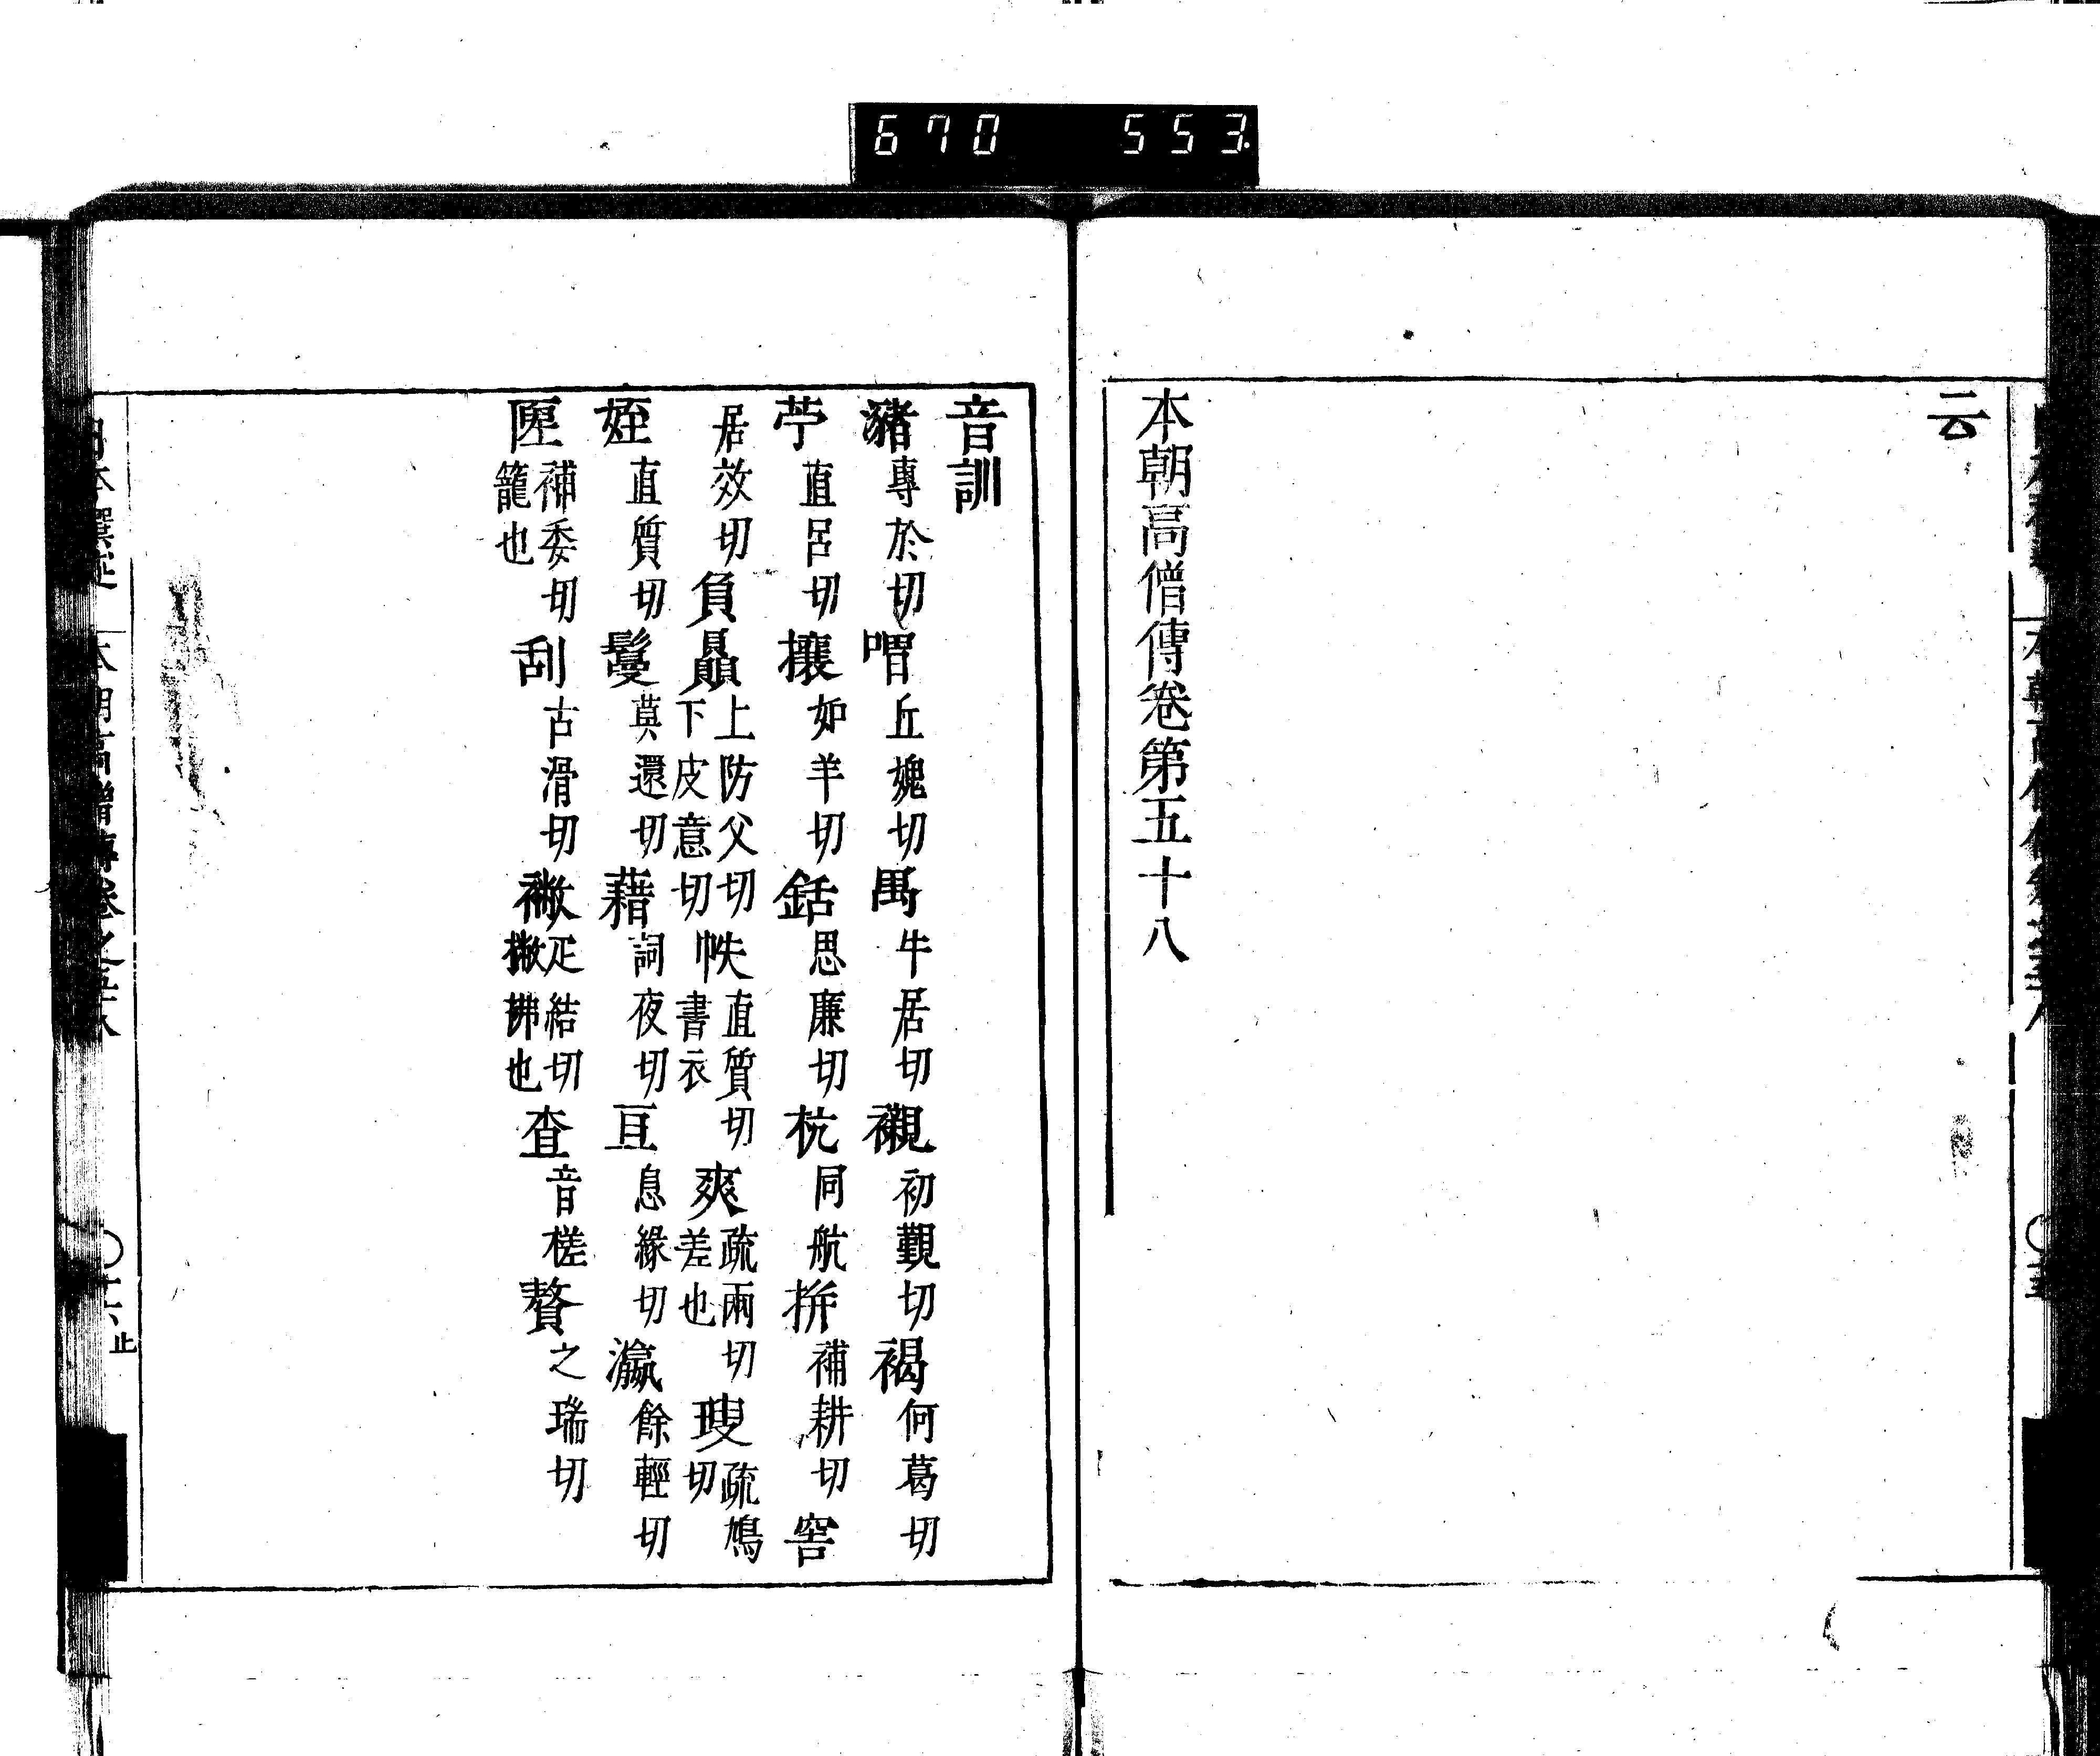 670 553
云
本朝高僧傳卷第五十八
音訓
瀦專於切 喟丘媿切 禺牛居切 襯初覲切 褐何葛切
苧直呂切 攘如羊切 銛思廉切 杭同航 拚補耕切 窖
居效切 負贔上防父切下皮意切 帙直質切書衣 爽疏兩切差也 瑆疏鳩切
姪直質切 鬘莫還切 藉詞夜切 亘息緣切 瀛餘輕切
匣補委切籠也 刮古滑切 襒疋結切撇拂也 查音槎 贅之瑞切
本朝高僧傳卷之五十八
十六
止